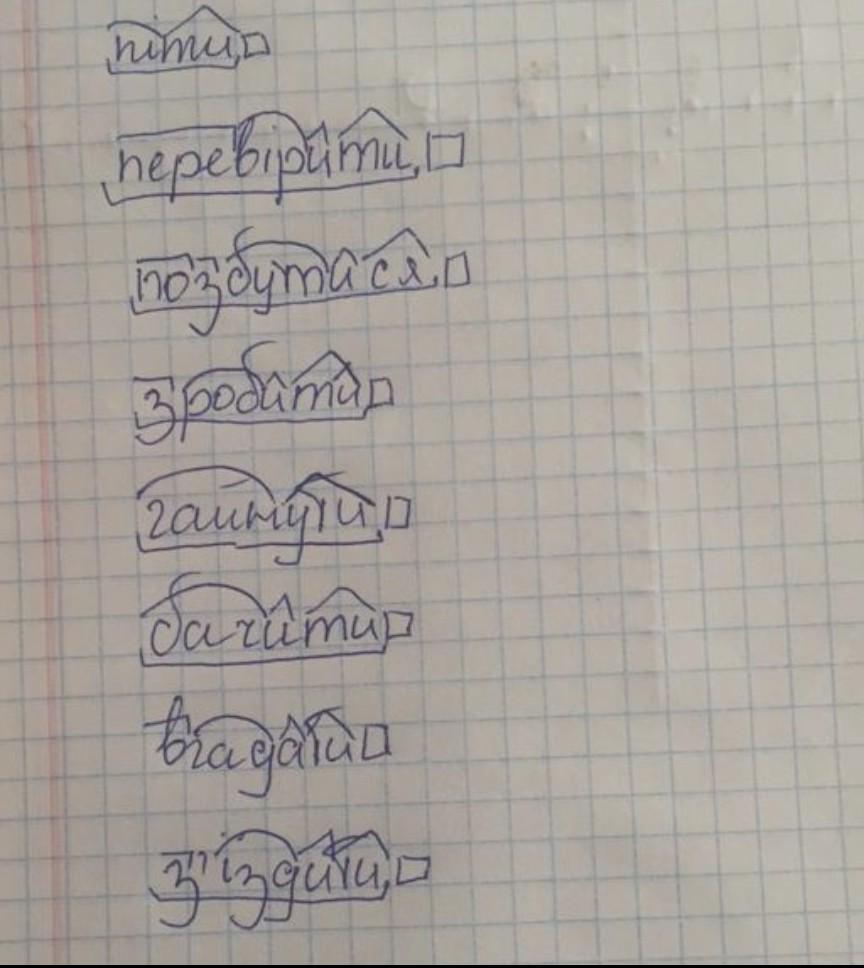 піти
перевірити
позбутися
зробити
гайнути
бачити
вгадати
з'їздити